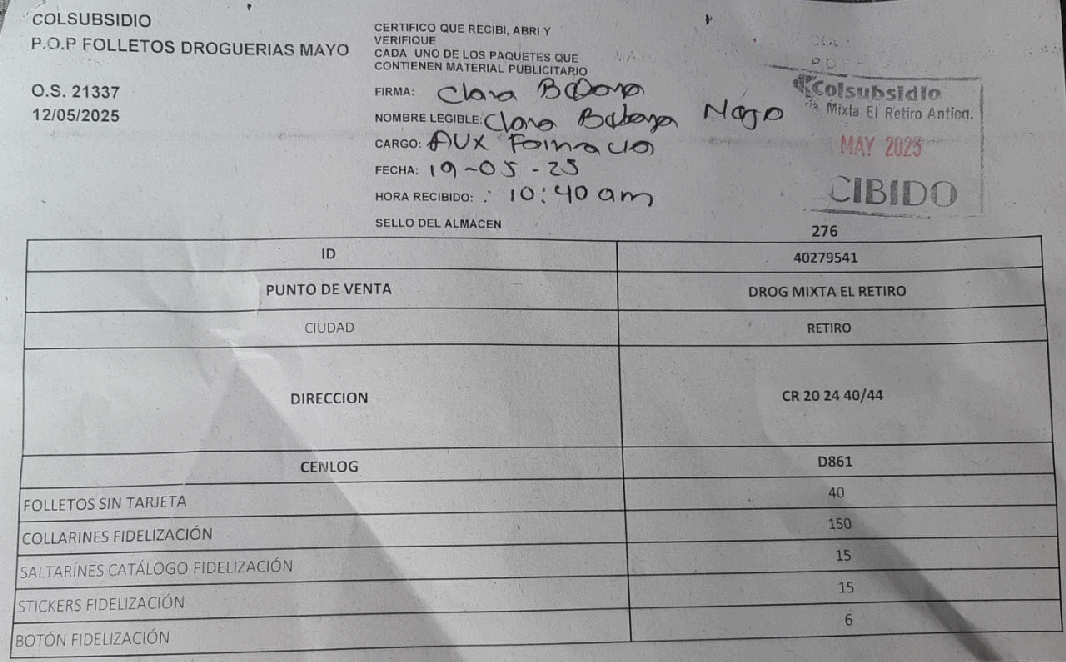 COLSUBSIDIO
P.O.P FOLLETOS DROGUERIAS MAYO
O.S. 21337
12/05/2025
CERTIFICO QUE RECIBI, ABRI Y
VERIFIQUE
CADA UNO DE LOS PAQUETES QUE
CONTIENEN MATERIAL PUBLICITARIO
FIRMA: Clara
NOMBRE LEGIBLE: Clara
CARGO: AUX
FECHA: 19-05-25
HORA RECIBIDO: : 10:40 am
SELLO DEL ALMACEN
Colsubsidio
Mixta El Retiro Antioq.
MAY 2025
CIBIDO
276
ID 40279541
PUNTO DE VENTA DROG MIXTA EL RETIRO
CIUDAD RETIRO
DIRECCION CR 20 24 40/44
CENLOG D861
FOLLETOS SIN TARJETA 40
COLLARINES FIDELIZACIÓN 150
SALTARÍNES CATÁLOGO FIDELIZACIÓN 15
STICKERS FIDELIZACIÓN 15
BOTÓN FIDELIZACIÓN 6